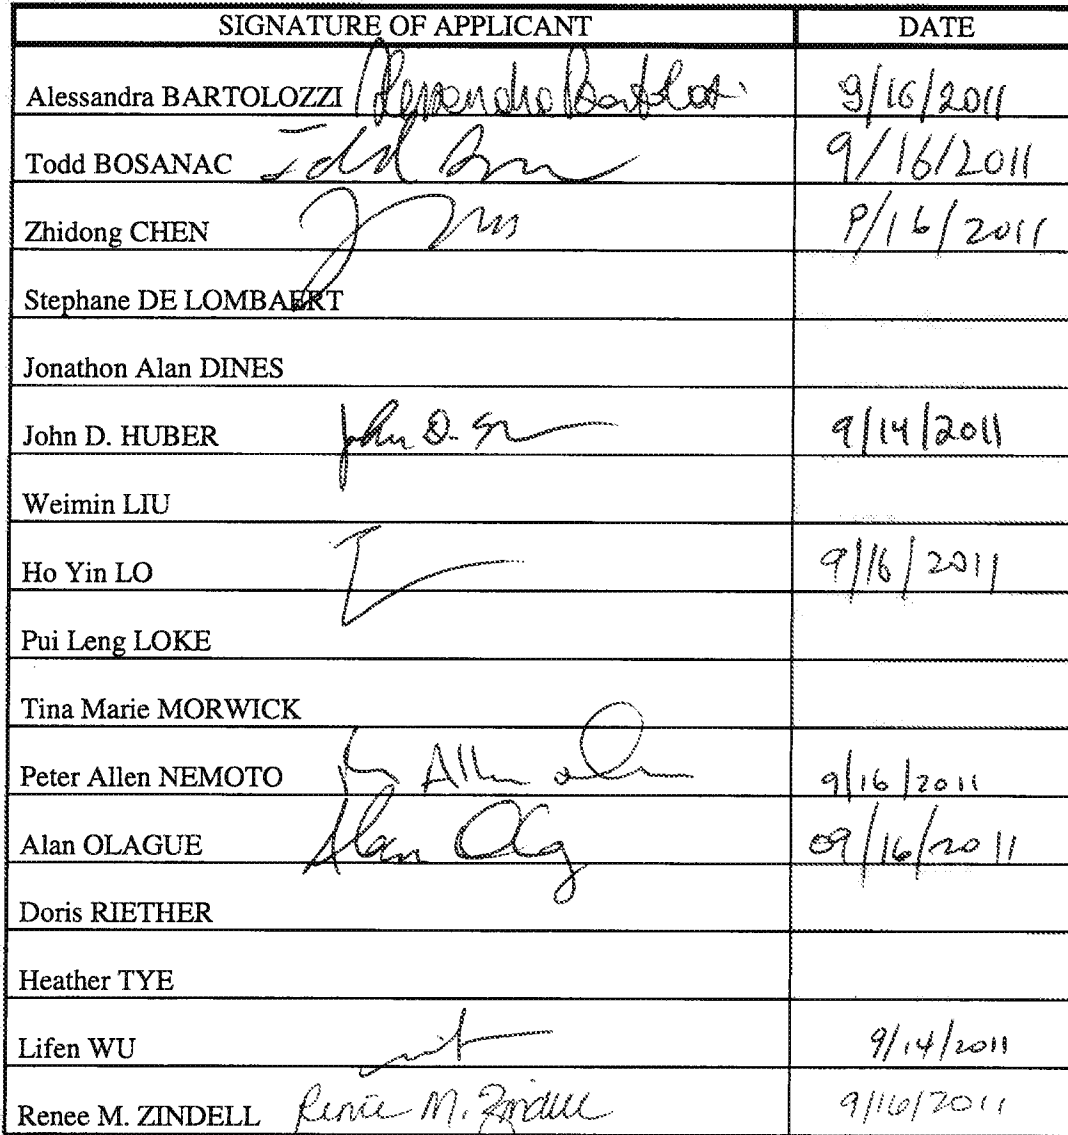 SIGNATURE OF APPLICANT DATE
Alessandra BARTOLOZZI Alessandra Bartolozzi 9/16/2011
Todd BOSANAC Todd 9/16/2011
Zhidong CHEN 9/16/2011
Stephane DE LOMBAERT
Jonathon Alan DINES
John D. HUBER John D. 9/14/2011
Weimin LIU
Ho Yin LO 9/16/2011
Pui Leng LOKE
Tina Marie MORWICK
Peter Allen NEMOTO Allen 9/16/2011
Alan OLAGUE Alan Olag 09/16/2011
Doris RIETHER
Heather TYE
Lifen WU 9/14/2011
Renee M. ZINDELL Renee M. Zindell 9/16/2011